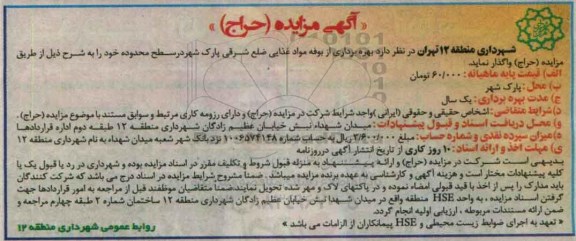 « آگهی مزایده (حراج) »
شهرداری منطقه ۱۲ تهران در نظر دارد بهره برداری از بوفه مواد غذایی ضلع شرقی پارک شهر درسطح محدوده خود را به شرح ذیل از طریق
مزایده (حراج) واگذار نماید.
الف) قیمت پایه ماهیانه: ۶۰/۰۰۰ تومان
ب) محل: پارک شهر
ج) مدت بهره برداری: یک سال
د) شرایط متقاضی: اشخاص حقیقی و حقوقی (ایرانی) واجد شرایط شرکت در مزایده (حراج) و دارای رزومه کاری مرتبط و سوابق مستند با موضوع مزایده (حراج).
و) محل دریافت اسناد و قبول پیشنهادات: میدان شهداء نبش خیابان عظیم زادگان شهرداری منطقه ۱۲ طبقه دوم اداره قراردادها
ه) میزان سپرده نقدی و شماره حساب: مبلغ ۳/۶۰۰/۰۰۰ ریال به حساب شماره ۱۰۰۶۵۷۴۱۴۸ نزد بانک شهر شعبه میدان شهداء به نام شهرداری منطقه ۱۲
ی) مهلت اخذ و ارائه اسناد: ۱۰ روز کاری از تاریخ انتشار آگهی در روزنامه
بدیهی است شرکت در مزایده (حراج) و ارائه پیشنهاد به منزله قبول شروط و تکلیف مقرر در اسناد مزایده بوده و شهرداری در رد یا قبول یک یا
کلیه پیشنهادات مختار است و هزینه آگهی و کارشناسی به عهده برنده مزایده میباشد. ضمنا مشروح شرایط مزایده در اسناد درج می باشد که شرکت کنندگان
باید مدارک را پس از اخذ با قید قبولی امضاء نموده و در پاکتهای لاک و مهر شده تحویل نمایند. ضمنا متقاضیان موظفند قبل از مراجعه به امور قراردادها جهت
گرفتن اسناد مزایده، به واحد HSE منطقه واقع در میدان شهدا نبش خیابان عظیم زادگان شهرداری منطقه ۱۲ ساختمان شماره ۲ طبقه چهارم مراجعه و
ضمن ارائه مستندات مربوطه، ارزیابی اولیه انجام گردد.
« تعهد به اجرای ضوابط زیست محیطی و HSE پیمانکاران از الزامات می باشد »
روابط عمومی شهرداری منطقه ۱۲